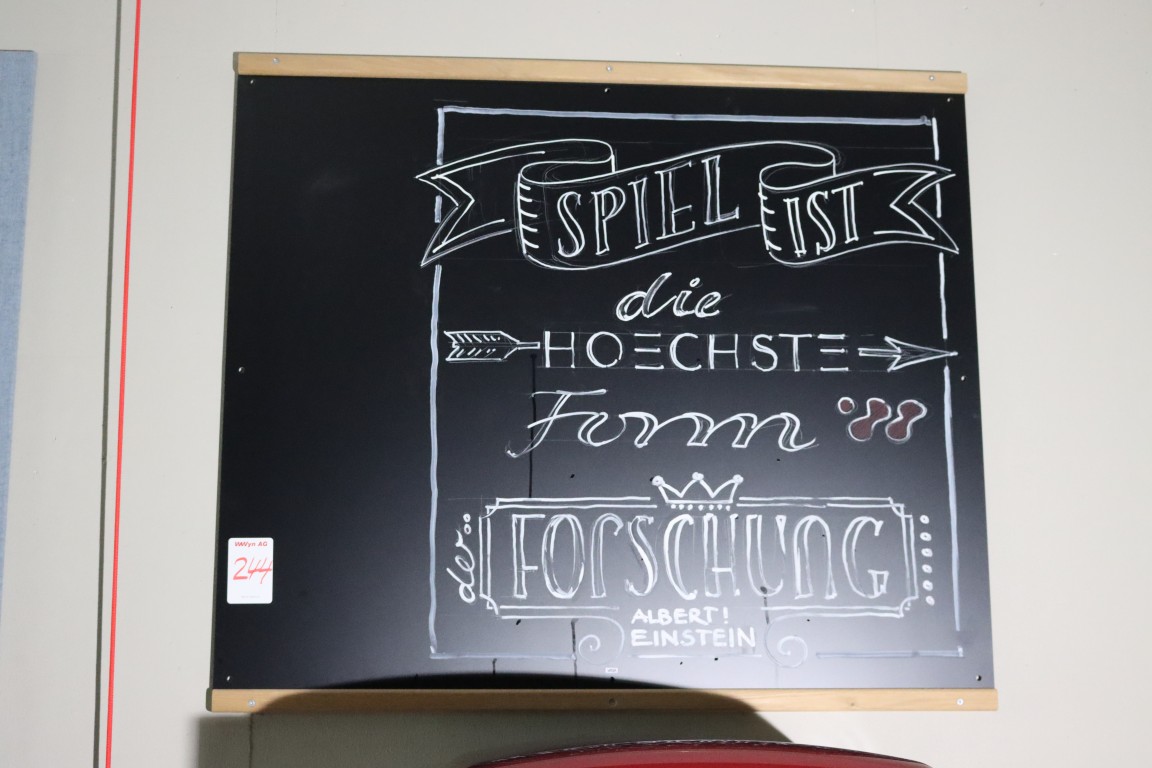 SPIEL IST
die
HOECHSTE
Form
der FORSCHUNG
ALBERT!
EINSTEIN
244